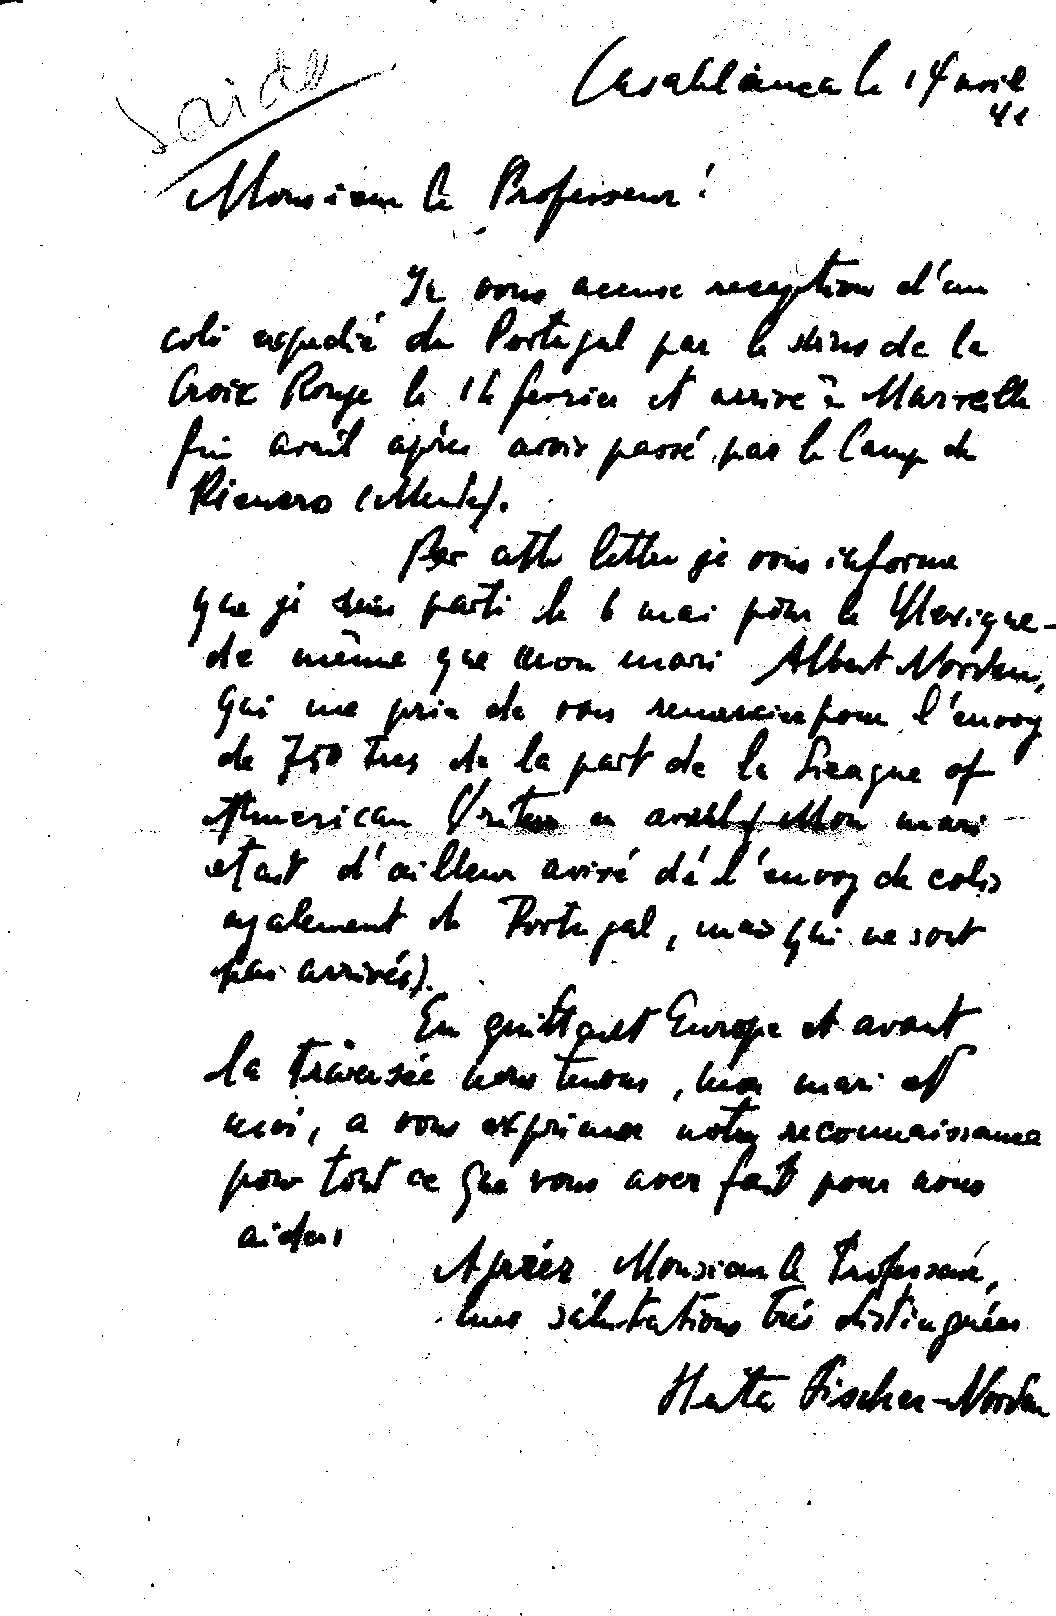 Casablanca le 14 avril
41
Monsieur le Professeur!
Je vous accuse reception d'un
coli expedié du Portugal par le soins de la
Croix Rouge le 14 fevrier et arrivé à Marseille
fin avril après avoir passé par le Camp de
Rieucros (Mende).
Par cette lettre je vous informe
que je suis parti le 6 mai pour le Mexique
de même que mon mari Albert Norden,
qui me prie de vous remercier pour l'envoy
de 750 frcs de la part de la League of
American Writers en avril (Mon mari
etait d'ailleur avisé dé l'envoy de colis
egalement de Portugal, mais qui ne sont
pas arrivés).
En quittant Europe et avant
la traversée nous tenons, mon mari et
moi, a vous exprimer notre reconnaissance
pour tout ce que vous avez fait pour nous
aider.
Agréez Monsieur le Professeur,
mes salutations très distinguées
Herta Fischer-Norden